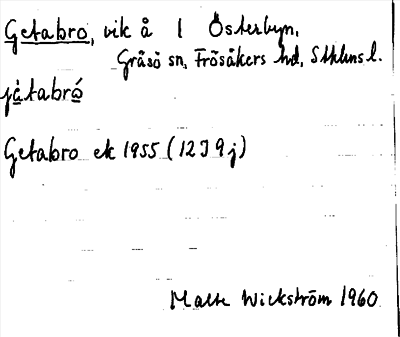 Getabro, vik å 1 Österbyn,
Gräsö sn, Frösåkers hd, Sthlms l.
Getabro ek 1955 (12J 9j)
Malte Wickström 1960